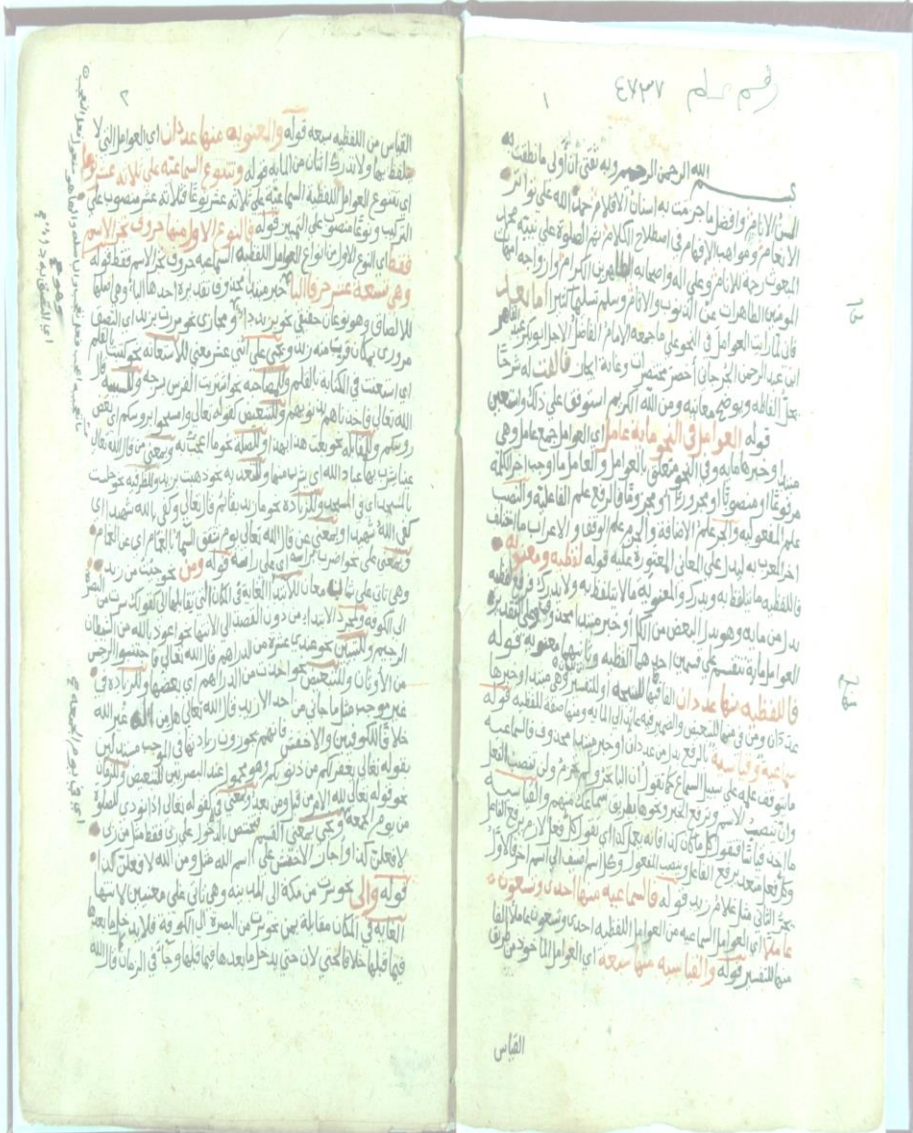 رقم سلم ٤٧٣٧
١
بسم الله الرحمن الرحيم وبه ثقتي ان أولى ما نطقت به
السن الانام وافضل ما جرت به اسنان الاقلام حمد الله على تواتر
الانعام ومواهب الافهام في اصطلاح الكلام ثم الصلوة على نبيه محمد
المبعوث رحمة للانام وعلى اله واصحابه الطاهرين الكرام وازواجه امهات
المومنين الطاهرات من الذنوب والاثام وسلم تسليما كثيرا اما بعد
فان لما رأيت العوامل في النحو على ما جمعه الامام الفاضل ابو بكر عبد القاهر
ابن عبد الرحمن الجرجاني أخصر مختصرات وغاية ايجاز فالفت له شرحا
يحل الفاظه ويوضح معانيه ومن الله الكريم استوفق على ذلك واستعين
قوله العوامل في النحو مائة عامل اي العوامل جمع عامل وهي
مبتدا وخبرها مايه وفي النحو متعلق بالعوامل والعامل ما اوجب اخر الكلمة
مرفوعا او منصوبا او مجرورا او مجزوما فالرفع علم الفاعلية والنصب
علم المفعولية والجر علم الاضافة والجزم علم الوقف والاعراب ما اختلف
اخر المعرب به ليدل على المعاني المعتورة عليه قوله لفظيه ومعنويه
فاللفظيه ما يتلفظ به ويدرك والمعنويه ما لا يتلفظ به ولا يدرك وقوله لفظيه
بدل من مايه وهو بدل البعض من الكل او خبر مبتدا محذوف
العوامل مايه تنقسم على قسمين احدهما لفظيه وثانيهما معنويه قوله
فاللفظيه منها عددان الفا فيها للنتيجه او للتفسير وهي مبتدا وخبرها
عددان ومن في منها للتبعيض والضمير فيه عايد الى المايه ومنها صفه للفظيه قوله
سماعيه وقياسيه بالرفع بدل من عددان او خبر مبتدا محذوف فالسماعيه
ما يتوقف عليه على سبيل السماع كما تقول ان الباء تجر ولم تجزم ولن تنصب الفعل
وان تنصب الاسم وترفع الخبر ونحوها بطريق سماعك منهم والقياسيه
وكل فعل متعد يرفع الفاعل وينصب المفعول وكل اسم اضيف الى اسم اخر فالاول
يجر الثاني مثل غلام زيد قوله فالسماعيه منها احدى وتسعون
عاملا اي العوامل السماعيه من العوامل اللفظيه احدى وتسعون عاملا الفا
منها للتفسير قوله والقياسيه منها سبعه اي العوامل الماخوذ من طريق
القياس
٢
القياس من اللفظيه سبعه قوله والمعنويه منها عددان اي العوامل التي لا
يتلفظ بها ولا تدرك اثنان من المايه قوله وتتنوع السماعيه على ثلاثه عشر نوعا
اي تتنوع العوامل اللفظيه السماعيه على ثلاثه عشر نوعا فثلاثه عشر منصوب على
التركيب ونوعا منصوب على التمييز قوله فالنوع الاول منها حروف تجر الاسم
فقط اي النوع الاول من انواع العوامل اللفظيه السماعيه حروف تجر الاسم فقط قوله
وهي سبعه عشر حرفا الباء خبر مبتدا محذوف تقديره احدها الباء وهي اصلها
للالصاق وهو نوعان حقيقي نحو بزيد داء ومجازي نحو مررت بزيد اي التصق
مروري بمكان قريب منه زيد وتجي على اثنى عشر معنى للاستعانه نحو كتبت بالقلم
اي استعنت في الكتابه بالقلم وللمصاحبه نحو اشتريت الفرس بسرجه وللسببيه قال
الله تعالى فاخذناهم بذنوبهم وللتبعيض كقوله تعالى وامسحوا بروسكم اي بعض
روسكم وللمقابله نحو بعت هذا بهذا وبمعنى من قال الله تعالى
عينا يشرب بها عباد الله اي يشرب منها وللتعديه نحو ذهبت بزيد وللظرفيه نحو جلست
بالمسجد اي في المسجد وللزياده نحو ما زيد بقائم قال تعالى وكفى بالله شهيدا اي
كفى الله شهيدا وبمعنى عن قال الله تعالى يوم تشقق السماء بالغمام اي عن الغمام
وبمعنى على نحو اضرب براسه اي على راسه قوله ومن نحو جئت من زيد
وهي تاتي على معان للابتدا الغاية في المكان التي يقابلها الى كقولك سرت من البصرة
الى الكوفه ولمجرد الابتداء من دون القصد الى الانتها نحو اعوذ بالله من الشيطان
الرجيم وللتبيين نحو عندي عشرة من الدراهم قال الله تعالى فاجتنبوا الرجس
من الاوثان وللتبعيض نحو اخذت من الدراهم اي بعضها وللزيادة في
غير موجب مثل ما جاني من احد الا زيد قال الله تعالى هل من اله غير الله
خلافا للكوفيين والاخفش فانهم يجوزون زيادتها في الموجب مستدلين
بقوله تعالى يغفر لكم من ذنوبكم وهو محمول عند البصريين للتبعيض
نحو قوله تعالى لله الامر من قبل ومن بعد وبمعنى في كقوله تعالى اذا نودي للصلوة
من يوم الجمعه وتجي بمعنى القسم فتختص بالدخول على ربي فقط مثل من ربي
لافعلن كذا واجاز الاخفش على اسم الله مثل ومن الله لافعلن كذا
قوله والى نحو سرت من مكه الى المدينه وهي تاتي على معنيين لانتها
الغايه في المكان مقابلة لمن نحو سرت من البصرة الى الكوفه فلا يدخل ما بعدها
فيما قبلها خلافا لحتى لان حتى يدخل ما بعدها فيما قبلها وجا في الزمان قال الله
اي في يوم الجمعه